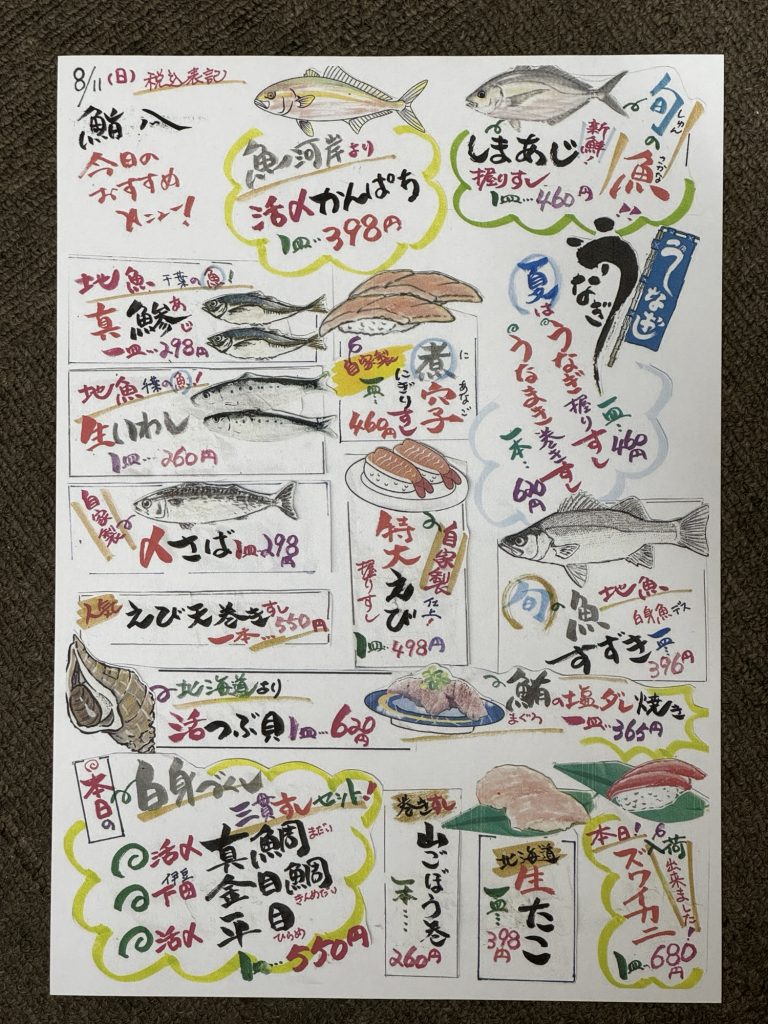 8/11(日) 税込表記
鮨八
今日の
おすすめ
メニュー!
魚河岸より
活〆かんぱち
1皿…398円
旬の魚!!
しゅん
さかな
新鮮!
しまあじ
握りすし
1皿…460円
地魚 千葉の魚!
真鯵
あじ
一皿…298円
地魚 千葉の魚!
生いわし
1皿…260円
自家製
〆さば 1皿…298円
人気
えび天巻きすし
一本…550円
自家製
煮穴子
に
あなご
にぎりすし
一皿…
460円
うなぎ
うなぎ
夏は
うなぎ握りすし
一皿…460円
うなまき巻きすし
一本…620円
自家製
仕上!
特大えび
握りすし
1皿…498円
旬の魚
地魚
白身魚デス
すずき
一皿…
396円
北海道より
活つぶ貝 1皿…620円
鮪の塩ダレ焼き
まぐろ
一皿…365円
本日の
白身づくし
三貫すしセット!
活〆 真鯛
まだい
伊豆
下田 金目鯛
きんめだい
活〆 平目
ひらめ
1皿…550円
巻きすし
山ごぼう巻
一本…
260円
北海道
生たこ
一皿…
398円
本日!
入荷
出来ました!
ズワイカニ
1皿…680円